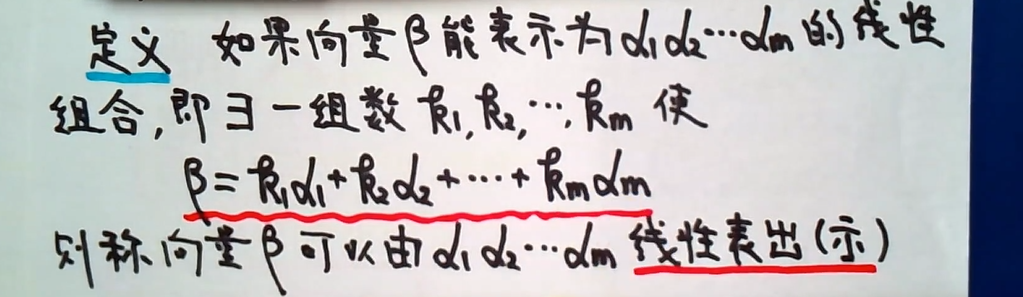 定义 如果向量β能表示为α1α2…αm的线性
组合,即∃一组数 k1,k2,…,km 使
β=k1α1+k2α2+…+kmαm
则称向量β可以由α1α2…αm线性表出(示)